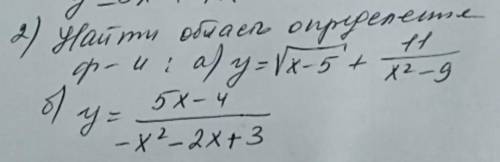 2) Найти область определение
ф-и: а) y = √x-5 + 11/(x²-9)
б) y = (5x-4)/(-x²-2x+3)